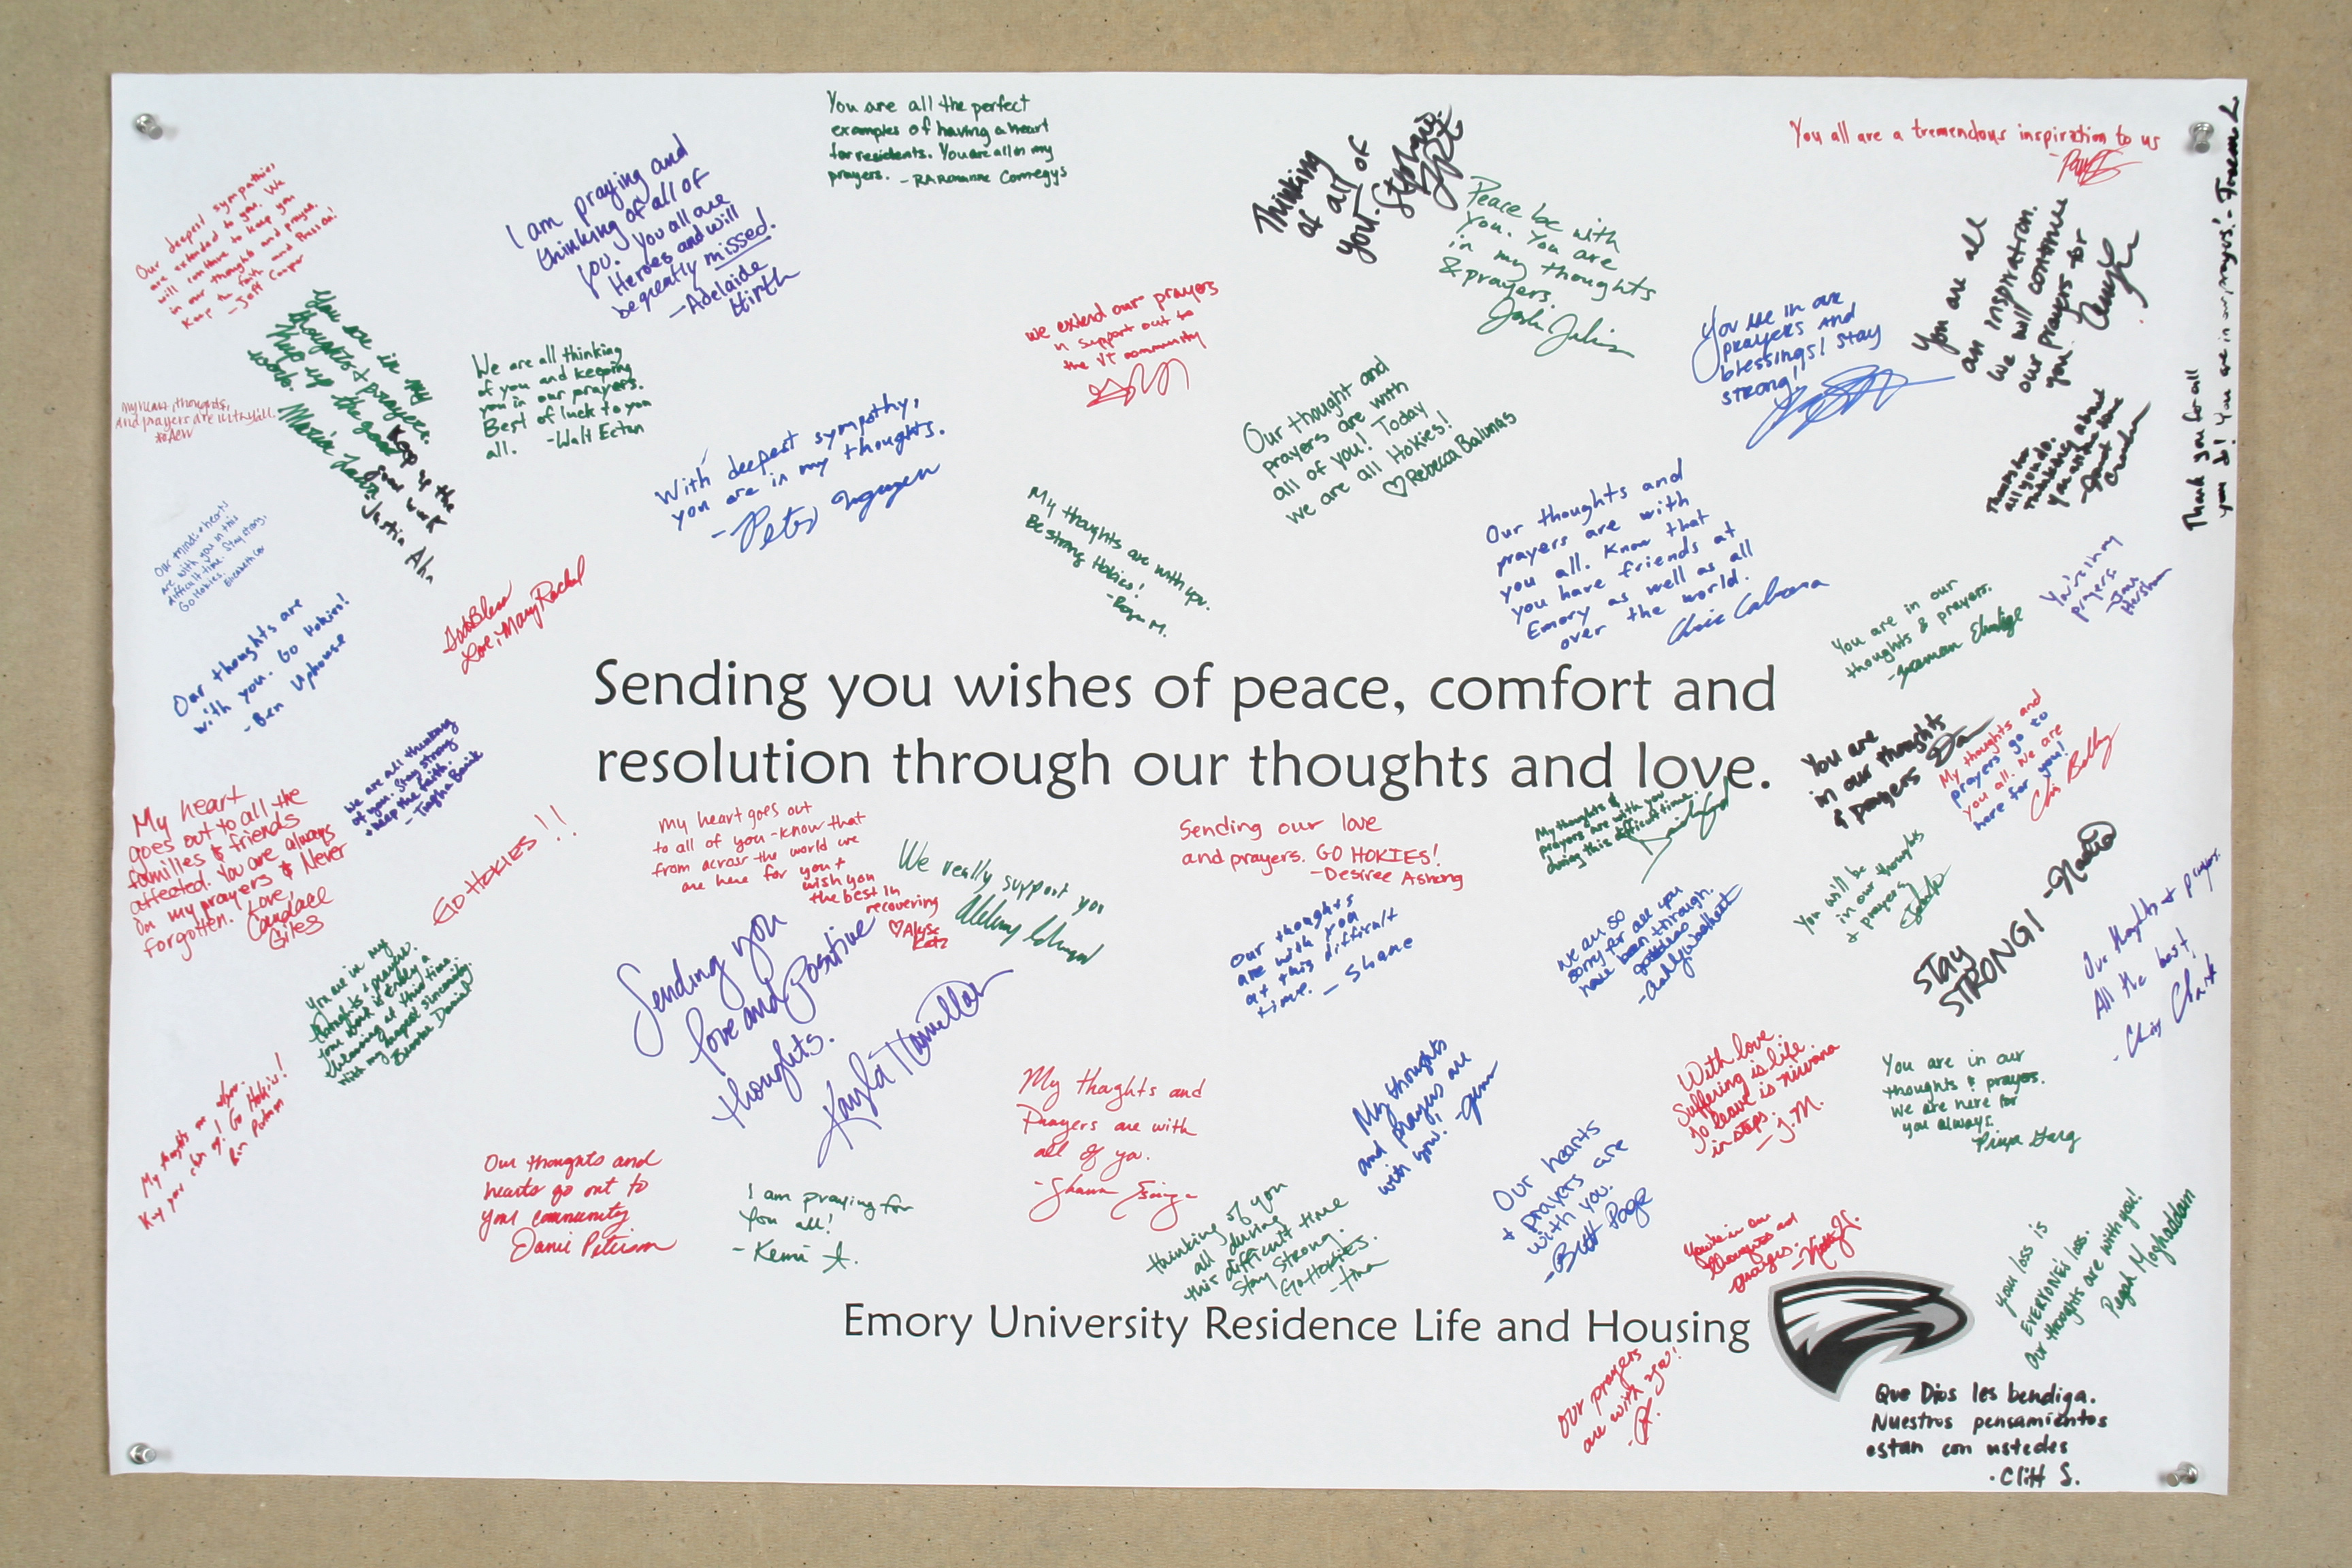 You are all the perfect
examples of having a heart
for residents. You are all in my
prayers. - RA Romanne Comegys
You all are a tremendous inspiration to us
Our deepest sympathies
are extended to you. We
will continue to keep you
in our thoughts and prayers.
Keep the faith and
- Jeff Cooper
I am praying and
thinking of all of
you. You all are
Heroes and will
be greatly missed.
- Adelaide
Hirth
Thinking
of all of
you.
Peace be with
you. You are
in my thoughts
& prayers.
You are all
an inspiration.
We will continue
our prayers for
you.
Thank you for all
you do! You are in our prayers!
You are in my
thoughts & prayers.
Keep up the good
work.
Maria
We are all thinking
of you and keeping
you in our prayers.
Best of luck to you
all. - Walt Ecton
we extend our prayers
n support out to
the VT community
You are in are
prayers and
blessings! Stay
strong!
My heart, thoughts,
and prayers are with y'all.
Keep up the
good work
Justin Ahn
With deepest sympathy,
you are in my thoughts.
- Peter Nguyen
Our thought and
prayers are with
all of you! Today
we are all Hokies!
♡ Rebecca Balunas
Thanks for
all you do.
Thinking about
you all
Our minds & hearts
are with you in this
difficult time. Stay strong.
Go Hokies.
My thoughts are with you.
Be strong Hokies!
- Roger M.
Our thoughts and
prayers are with
you all. Know that
you have friends at
Emory as well as all
over the world.
Chris Cabrera
You're in my
prayers.
God Bless
Love, Mary Rachel
Our thoughts are
with you. Go Hokies!
- Ben Uphouse
You are in our
thoughts & prayers.
Sending you wishes of peace, comfort and
resolution through our thoughts and love.
We are all thinking
of you. Stay strong
& keep the faith.
You are
in our thoughts
& prayers
My thoughts and
prayers go to
you all. We are
here for you!
My heart
goes out to all the
families & friends
affected. You are always
in my prayers & Never
forgotten. Love,
Candace
Giles
GO HOKIES!!
my heart goes out
to all of you - know that
from across the world we
are here for you &
wish you
the best in
recovering
♡ Alyse
Katz
We really support you
Sending our love
and prayers. GO HOKIES!
- Desiree Ashong
My thoughts &
prayers are with you
during this difficult time.
You will be
in our thoughts
& prayers
STAY
STRONG! - Nadia
Our thoughts & prayers.
All the best!
You are in my
thoughts & prayers.
Your work is
at this time.
With my deepest sincerity,
Brooke Daniel
Sending you
love and positive
thoughts.
Kayla Hamilton
Our thoughts
are with you
at this difficult
time. - Shane
We are so
sorry for all you
have been through.
My thoughts are
Go Hokies!
My thaghts and
Prayers are with
all of ya.
My thoughts
and prayers are
with you.
With love.
Suffering is life
To leave is nirvana
in steps.
- J.M.
You are in our
thoughts & prayers.
We are here for
you always.
Priya Garg
Our thoughts and
hearts go out to
your community
I am praying for
you all!
- Kemi A.
thinking of you
all during
this difficult time
Stay Strong.
Go Hokies.
- Tina
Our hearts
& prayers are
with you.
- Britt Page
You're in our
thoughts and
prayers.
Your loss is
EVERYONES loss.
Our thoughts are with you!
Pegah Moghaddam
Emory University Residence Life and Housing
our prayers
are with you!
Que Dios les bendiga.
Nuestros pensamientos
estan con ustedes
- Cliff S.